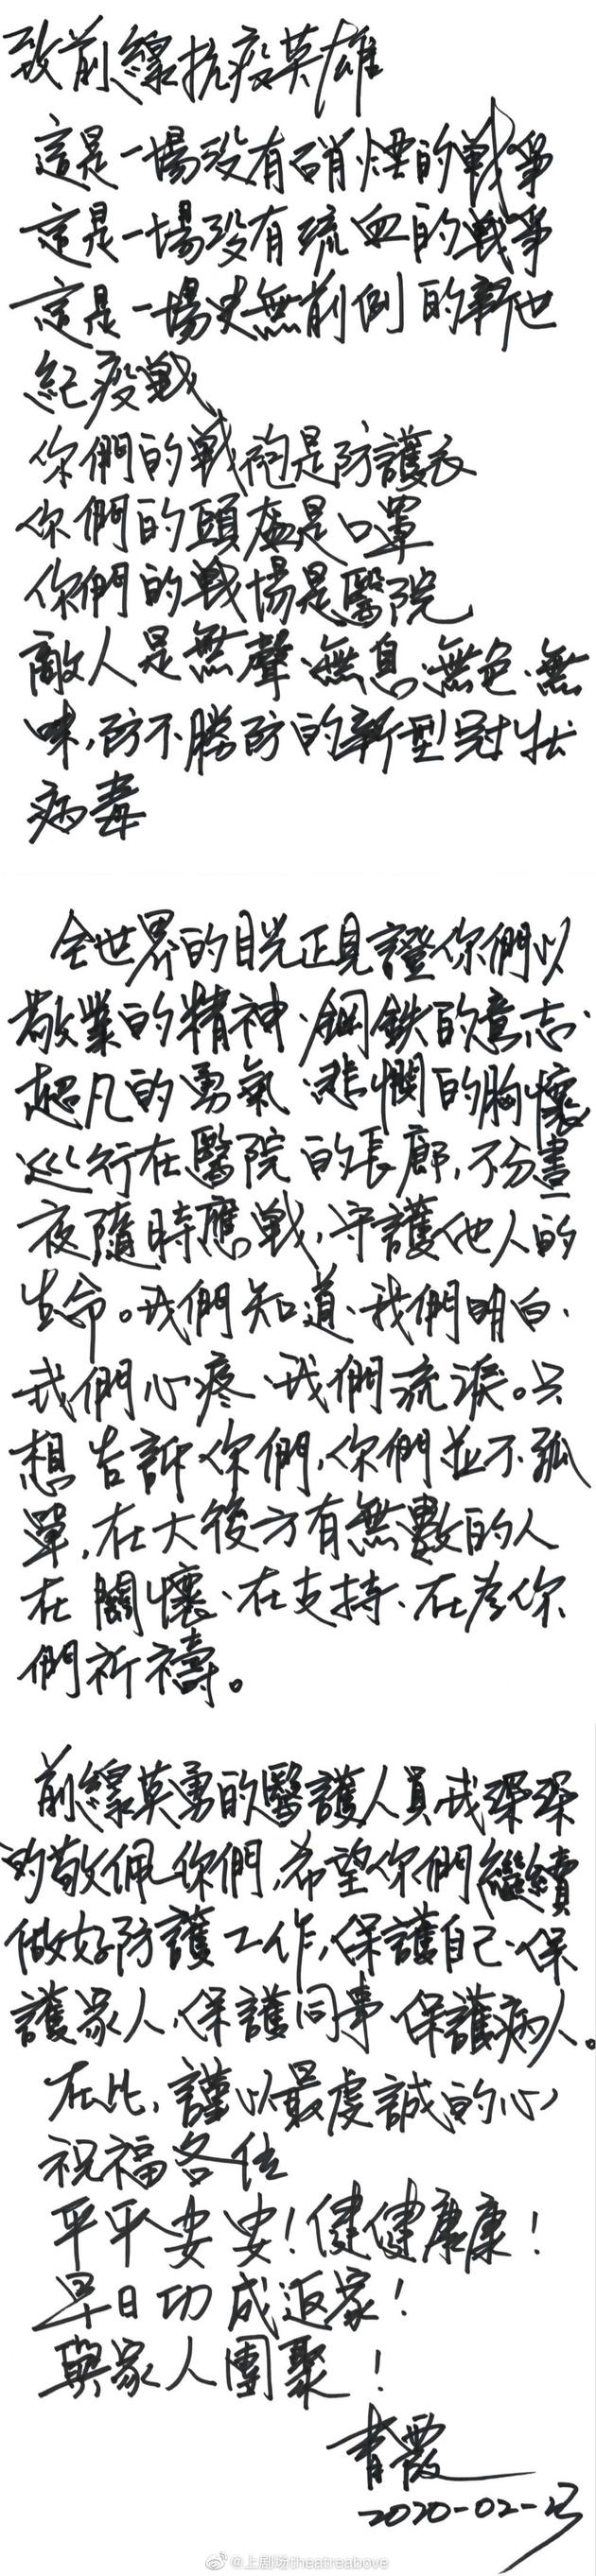 致前線抗疫英雄
這是一場沒有硝煙的戰爭
這是一場沒有硫血的戰爭
這是一場史無前例的新世
紀疫戰
你們的戰袍是防護衣
你們的頭盔是口罩
你們的戰場是醫院
敵人是無聲、無息、無色、無
味，防不勝防的新型冠狀
病毒
全世界的目光正見證你們以
敬業的精神、鋼鉄的意志、
超凡的勇氣、悲憫的胸懷
巡行在醫院的長廊，不分晝
夜隨時應戰，守護他人的
生命。我們知道、我們明白、
我們心疼、我們流淚。只
想告訴你們，你們並不孤
單，在大後方有無數的人
在關懷、在支持、在為你
們祈禱。
前線英勇的醫護人員我深深
的敬佩你們，希望你們繼續
做好防護工作，保護自己、保
護家人、保護同事、保護病人。
在此，謹以最虔誠的心
祝福各位
平平安安！健健康康！
早日功成返家！
與家人團聚！
青霞
2020-02-
@上剧场theatreabove